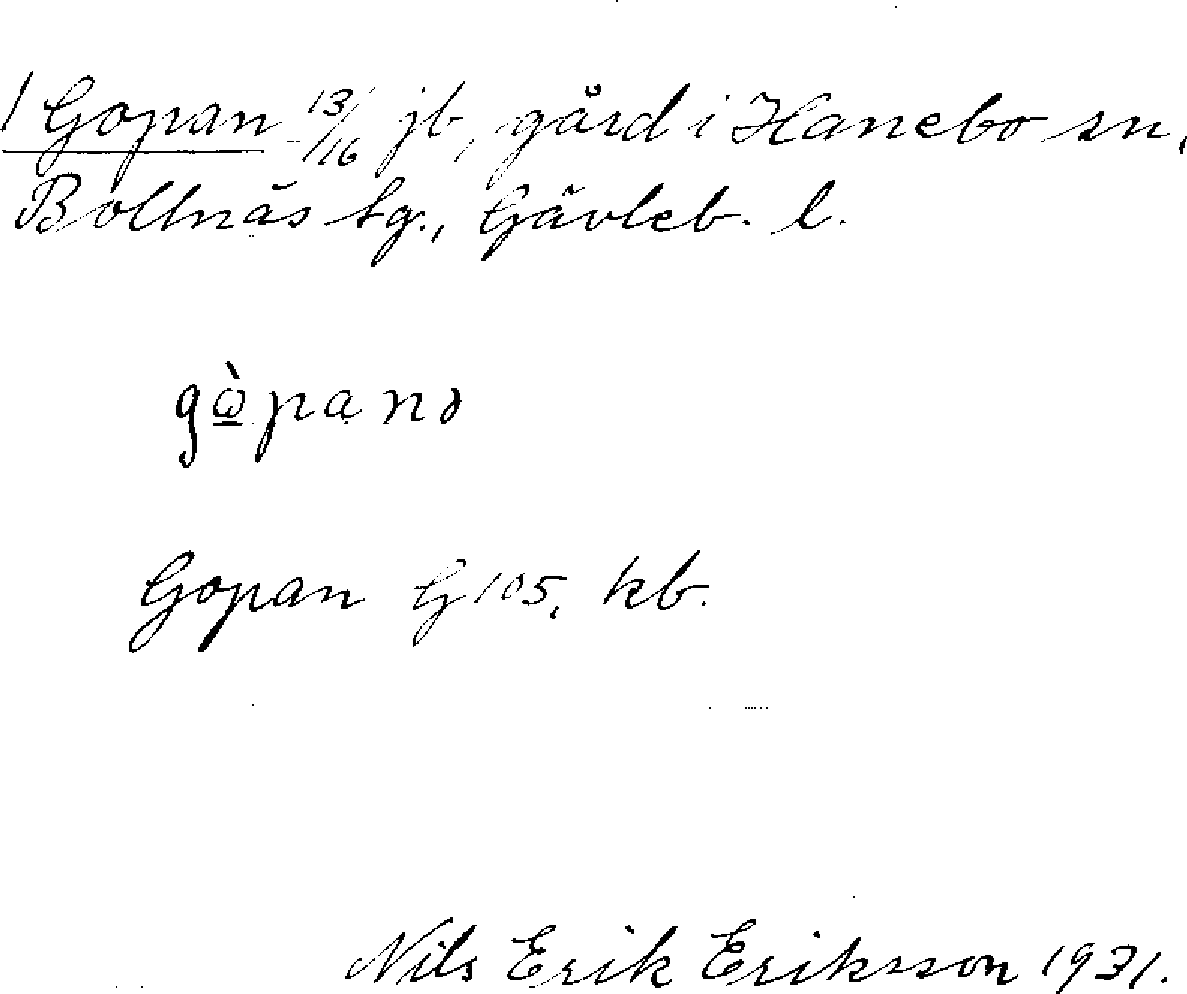 1 Gopan 13/16 jb, gård i Hanebo sn,
Bollnäs tg., Gävleb. l.
gὼ̲pạnə
Gopan G 105, kb.
Nils Erik Eriksson 1931.